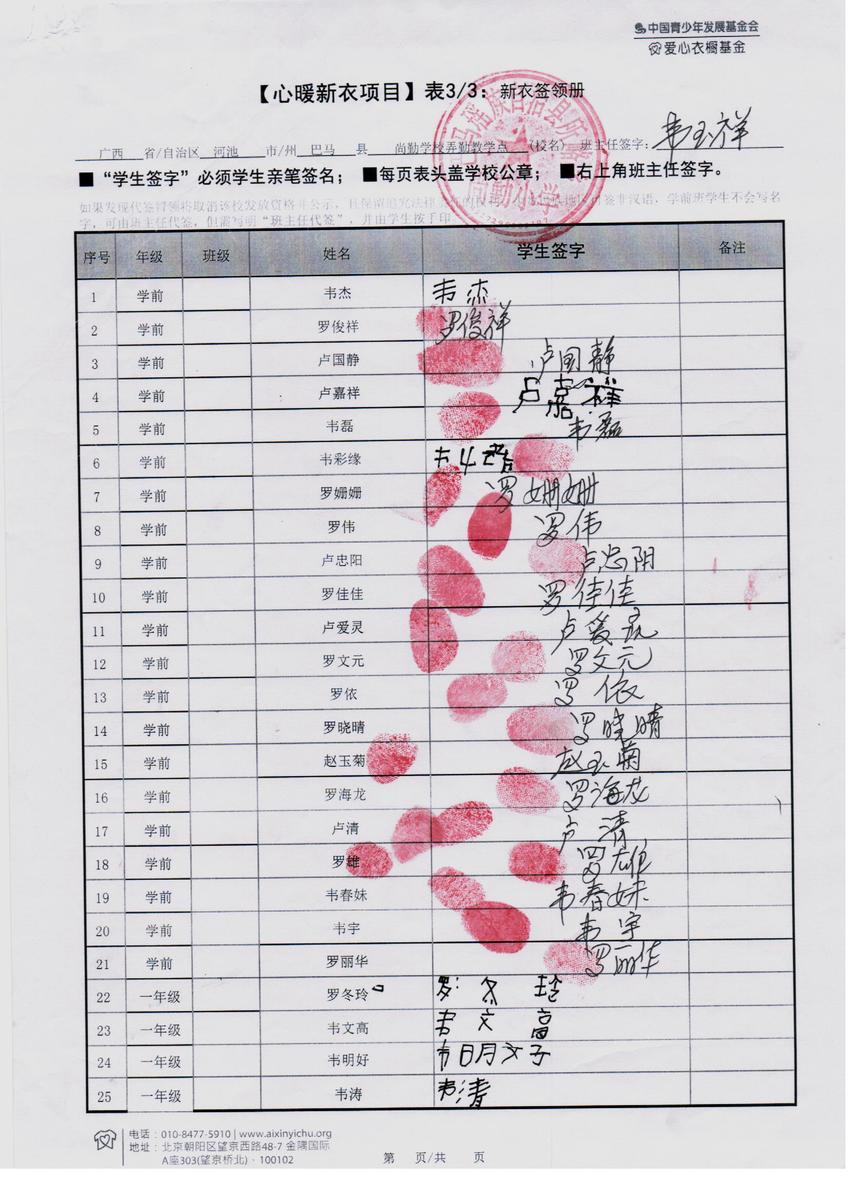 中国青少年发展基金会
爱心衣橱基金
【心暖新衣项目】表3/3：新衣签领册
广西 省/自治区 河池 市/州 巴马 县 尚勤学校弄勤教学点 （校名） 班主任签字：韦玉祥
■“学生签字”必须学生亲笔签名；■每页表头盖学校公章；■右上角班主任签字。
如果发现代签冒领将取消该校发放资格并公示，且保留追究法律 可签非汉语，学前班学生不会写名
字，可由班主任代签，但需写明“班主任代签”，并由学生按手印
序号 年级 班级 姓名 学生签字 备注
1 学前 韦杰 韦杰
2 学前 罗俊祥 罗俊祥
3 学前 卢国静 卢国静
4 学前 卢嘉祥 卢嘉祥
5 学前 韦磊 韦磊
6 学前 韦彩缘
7 学前 罗姗姗 罗姗姗
8 学前 罗伟 罗伟
9 学前 卢忠阳 卢忠阴
10 学前 罗佳佳 罗佳佳
11 学前 卢爱灵 卢爱灵
12 学前 罗文元 罗文元
13 学前 罗依 罗依
14 学前 罗晓晴 罗晓晴
15 学前 赵玉菊 赵玉菊
16 学前 罗海龙 罗海龙
17 学前 卢清 卢清
18 学前 罗雄 罗雄
19 学前 韦春妹 韦春妹
20 学前 韦宇 韦宇
21 学前 罗丽华 罗丽华
22 一年级 罗冬玲 罗冬玲
23 一年级 韦文高 韦文高
24 一年级 韦明好 韦明好
25 一年级 韦涛 韦清
电话：010-8477-5910 | www.aixinyichu.org
地址：北京朝阳区望京西路48-7 金隅国际
A座303(望京桥北)·100102
第 页/共 页